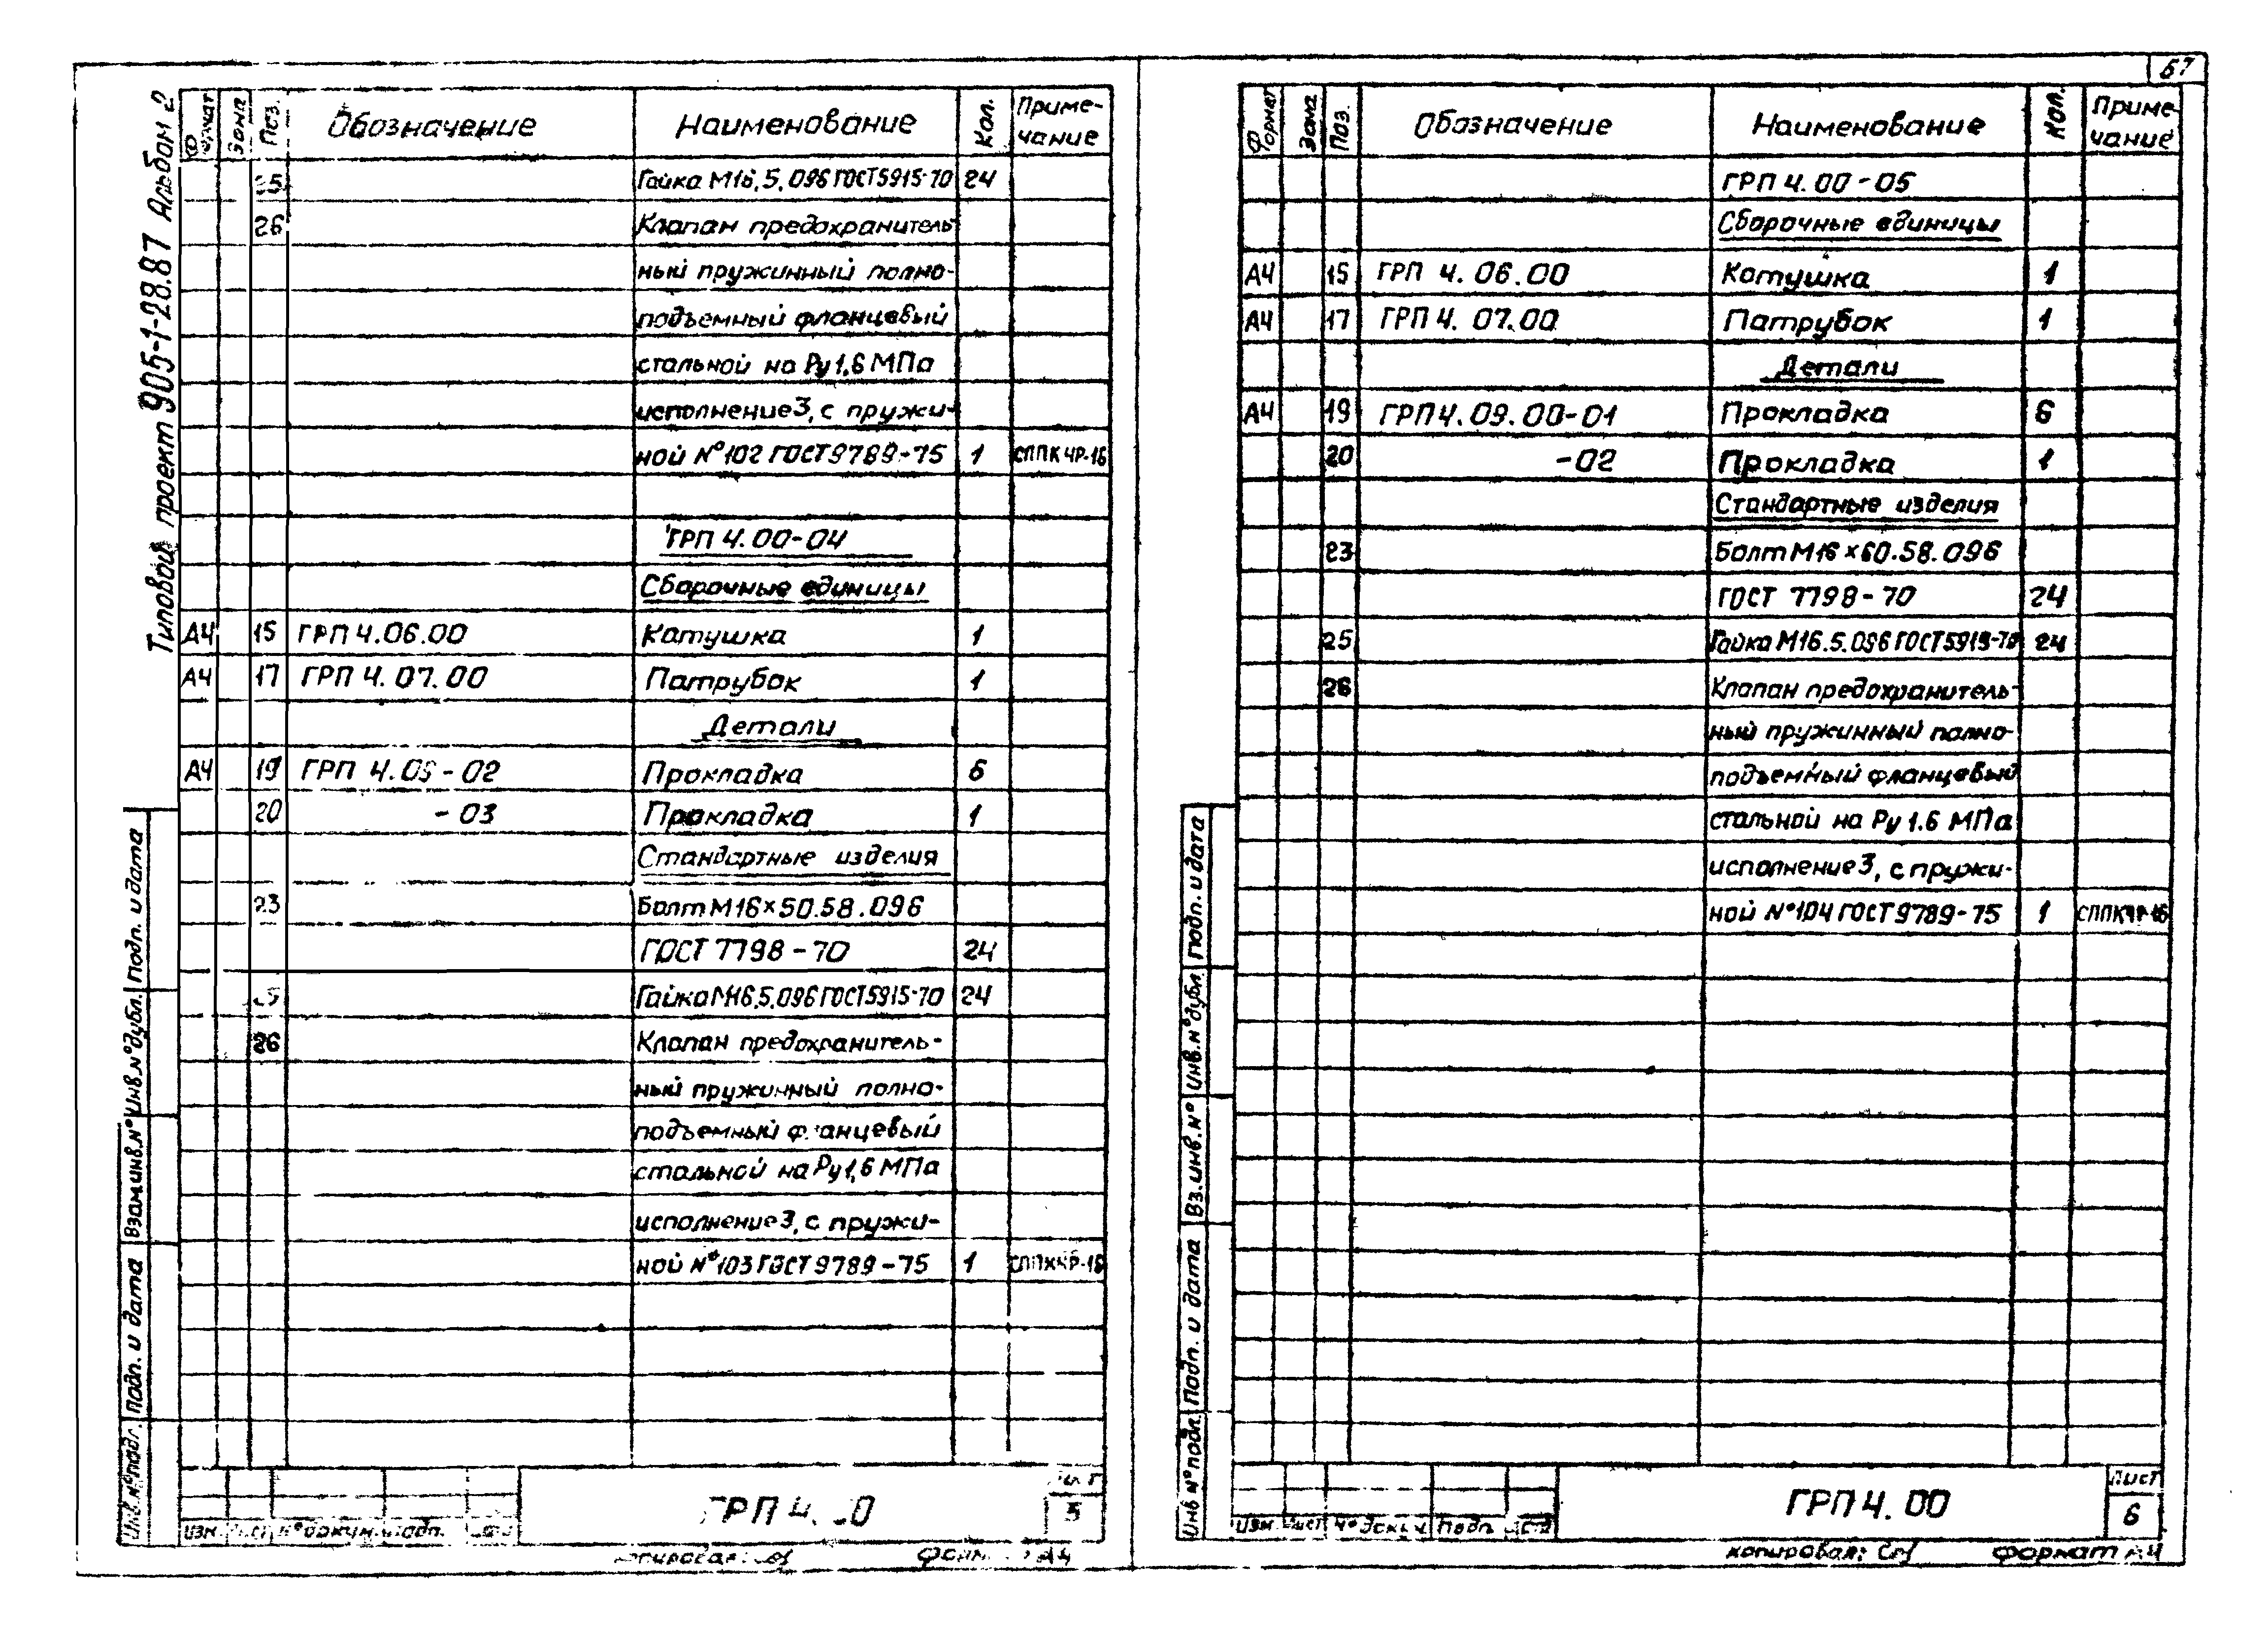 67
Типовой проект 905-1-28.87 Альбом 2
Формат Зона Поз. Обозначение Наименование Кол. Приме-
чание
25 Гайка М16.5.096 ГОСТ5915-70 24
26 Клапан предохранитель-
ный пружинный полно-
подъемный фланцевый
стальной на Ру1,6 МПа
исполнение3, с пружи-
ной №102 ГОСТ9789-75 1 СППК4Р-16
ГРП 4.00-04
Сборочные единицы
А4 15 ГРП 4.06.00 Катушка 1
А4 17 ГРП 4.07.00 Патрубок 1
Детали
А4 19 ГРП 4.09-02 Прокладка 6
20 -03 Прокладка 1
Стандартные изделия
23 Болт М16×50.58.096
ГОСТ 7798-70 24
25 Гайка М16.5.096 ГОСТ5915-70 24
26 Клапан предохранитель-
ный пружинный полно-
подъемный фланцевый
стальной на Ру1,6 МПа
исполнение3, с пружи-
ной №103 ГОСТ9789-75 1 СППК4Р-16
Инв.№подл. Подп. и дата Взам.инв.№ Инв.№дубл. Подп. и дата
Изм. Лист №докум. Подп. Дата
ГРП 4.00
Лист
5
копировал: формат А4
Формат Зона Поз. Обозначение Наименование Кол. Приме-
чание
ГРП 4.00-05
Сборочные единицы
А4 15 ГРП 4.06.00 Катушка 1
А4 17 ГРП 4.07.00 Патрубок 1
Детали
А4 19 ГРП 4.09.00-01 Прокладка 6
20 -02 Прокладка 1
Стандартные изделия
23 Болт М16×60.58.096
ГОСТ 7798-70 24
25 Гайка М16.5.096 ГОСТ5915-70 24
26 Клапан предохранитель-
ный пружинный полно-
подъемный фланцевый
стальной на Ру 1.6 МПа
исполнение3, с пружи-
ной №104 ГОСТ9789-75 1 СППК4Р-16
Инв №подл. Подп. и дата Вз.инв.№ Инв.№дубл. Подп. и дата
Изм. Лист №докум. Подп. Дата
ГРП 4.00
Лист
6
копировал: формат А4